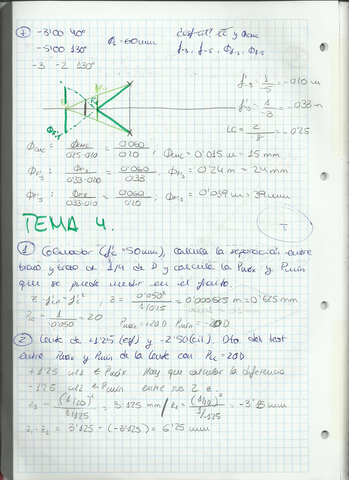 7 -3'00 40º ∅L=60mm
-5'00 130º f'-3, f'-5, ∅f'-3, ∅f'-5
-3 -2 130º
f'-5 = 1/-5 = -0'20 m
f'-3 = 1/-3 = -0'33 m
LC = 2/-8 = -0'25
∅cmc : ∅cmc/0'25-0'20 = 0'060/0'20 , ∅cmc = 0'015 m = 15 mm
0'33-0'20 = 0'060/0'33 = 0'24 m = 24 mm
0'33-0'20 = 0'060/0'20 = 0'039 m = 39 mm
TEMA 4.
1 (f'c = 50mm), calcula la separación entre
trazo y trazo de 1/4 de D y calcula la Pmáx y Pmín
que se puede medir en el fronto.
z · f'v = f'c² , z = 0'050²/1/0'25 = 0'000625 m = 0'625 mm
Pc = 1/0'050 = 20 Pmáx = +20 D Pmín = -20 D
2 Lente de +1'25 (esf) y -2'50 (cil). Dta del test
entre Pmáx y Pmín de la lente con Pc = 20D
+1'25 Pmáx Hay que calcular la diferencia
-1'25 Pmín entre las 2 z.
z1 = (1/20)²/1/1'25 = 3'125 mm / z2 = (1/20)²/1/-1'25 = -3'125 mm
z1-z2 = 3'125 - (-3'125) = 6'25 mm